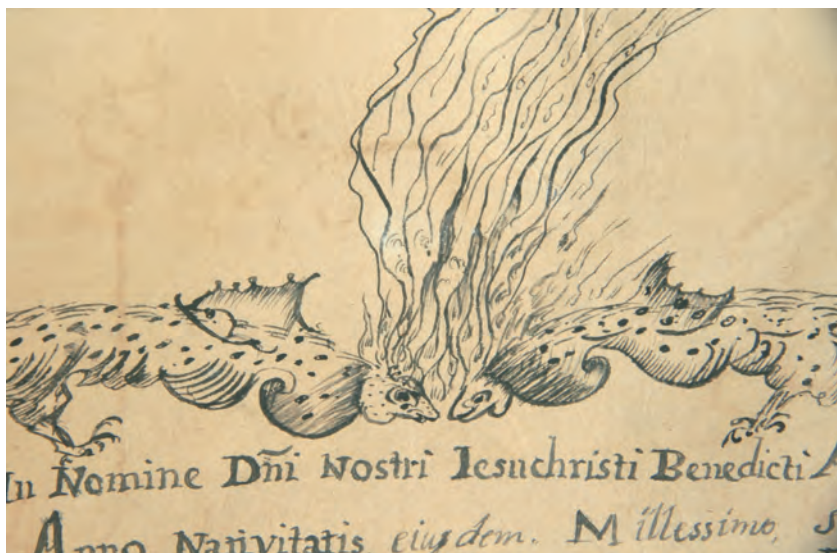 In Nomine Dñi Nostri Iesuchristi Benedicti A
Anno Nativitatis eiusdem. Millessimo, S